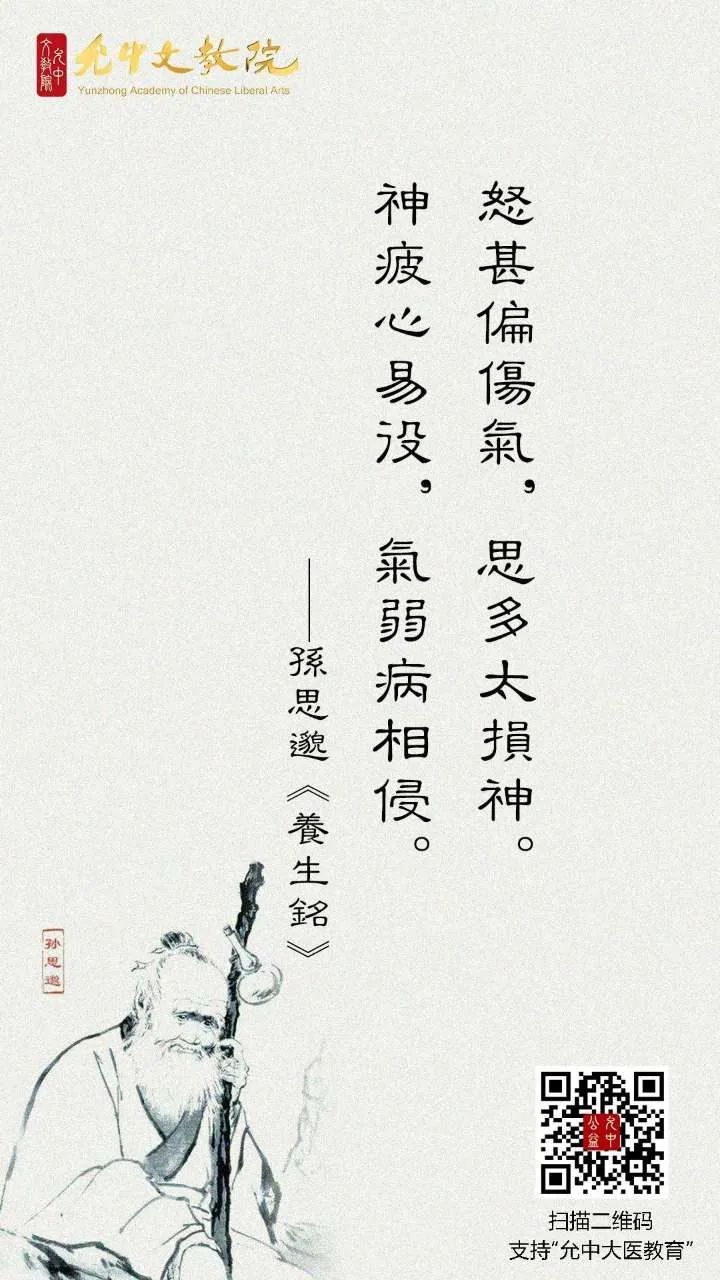 允中文教院
允中文教院
Yunzhong Academy of Chinese Liberal Arts
怒甚偏傷氣，思多太損神。
神疲心易役，氣弱病相侵。
——孫思邈《養生銘》
孙思邈
允中公益
扫描二维码
支持“允中大医教育”